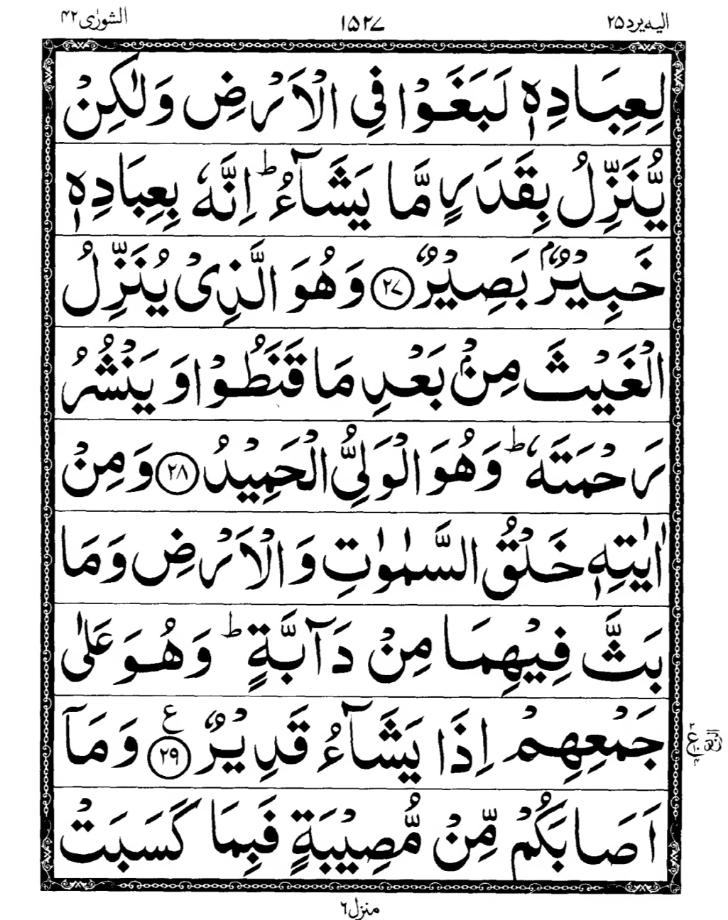 الشورٰی ۴۲
۱۵۲۷
الیہ یرد ۲۵
لِعِبَادِهٖ لَبَغَوْا فِی الْاَرْضِ وَلٰكِنْ
یُّنَزِّلُ بِقَدَرٍ مَّا یَشَآءُ ؕ اِنَّهٗ بِعِبَادِهٖ
خَبِیْرٌۢ بَصِیْرٌ ﴿۲۷﴾ وَهُوَ الَّذِیْ یُنَزِّلُ
الْغَیْثَ مِنْۢ بَعْدِ مَا قَنَطُوْا وَ یَنْشُرُ
رَحْمَتَهٗ ؕ وَهُوَ الْوَلِیُّ الْحَمِیْدُ ﴿۲۸﴾ وَمِنْ
اٰیٰتِهٖ خَلْقُ السَّمٰوٰتِ وَ الْاَرْضِ وَمَا
بَثَّ فِیْهِمَا مِنْ دَآبَّةٍ ؕ وَهُوَ عَلٰی
جَمْعِهِمْ اِذَا یَشَآءُ قَدِیْرٌ ﴿۲۹﴾ ع وَمَاۤ
اَصَابَكُمْ مِّنْ مُّصِیْبَةٍ فَبِمَا كَسَبَتْ
منزل ٦